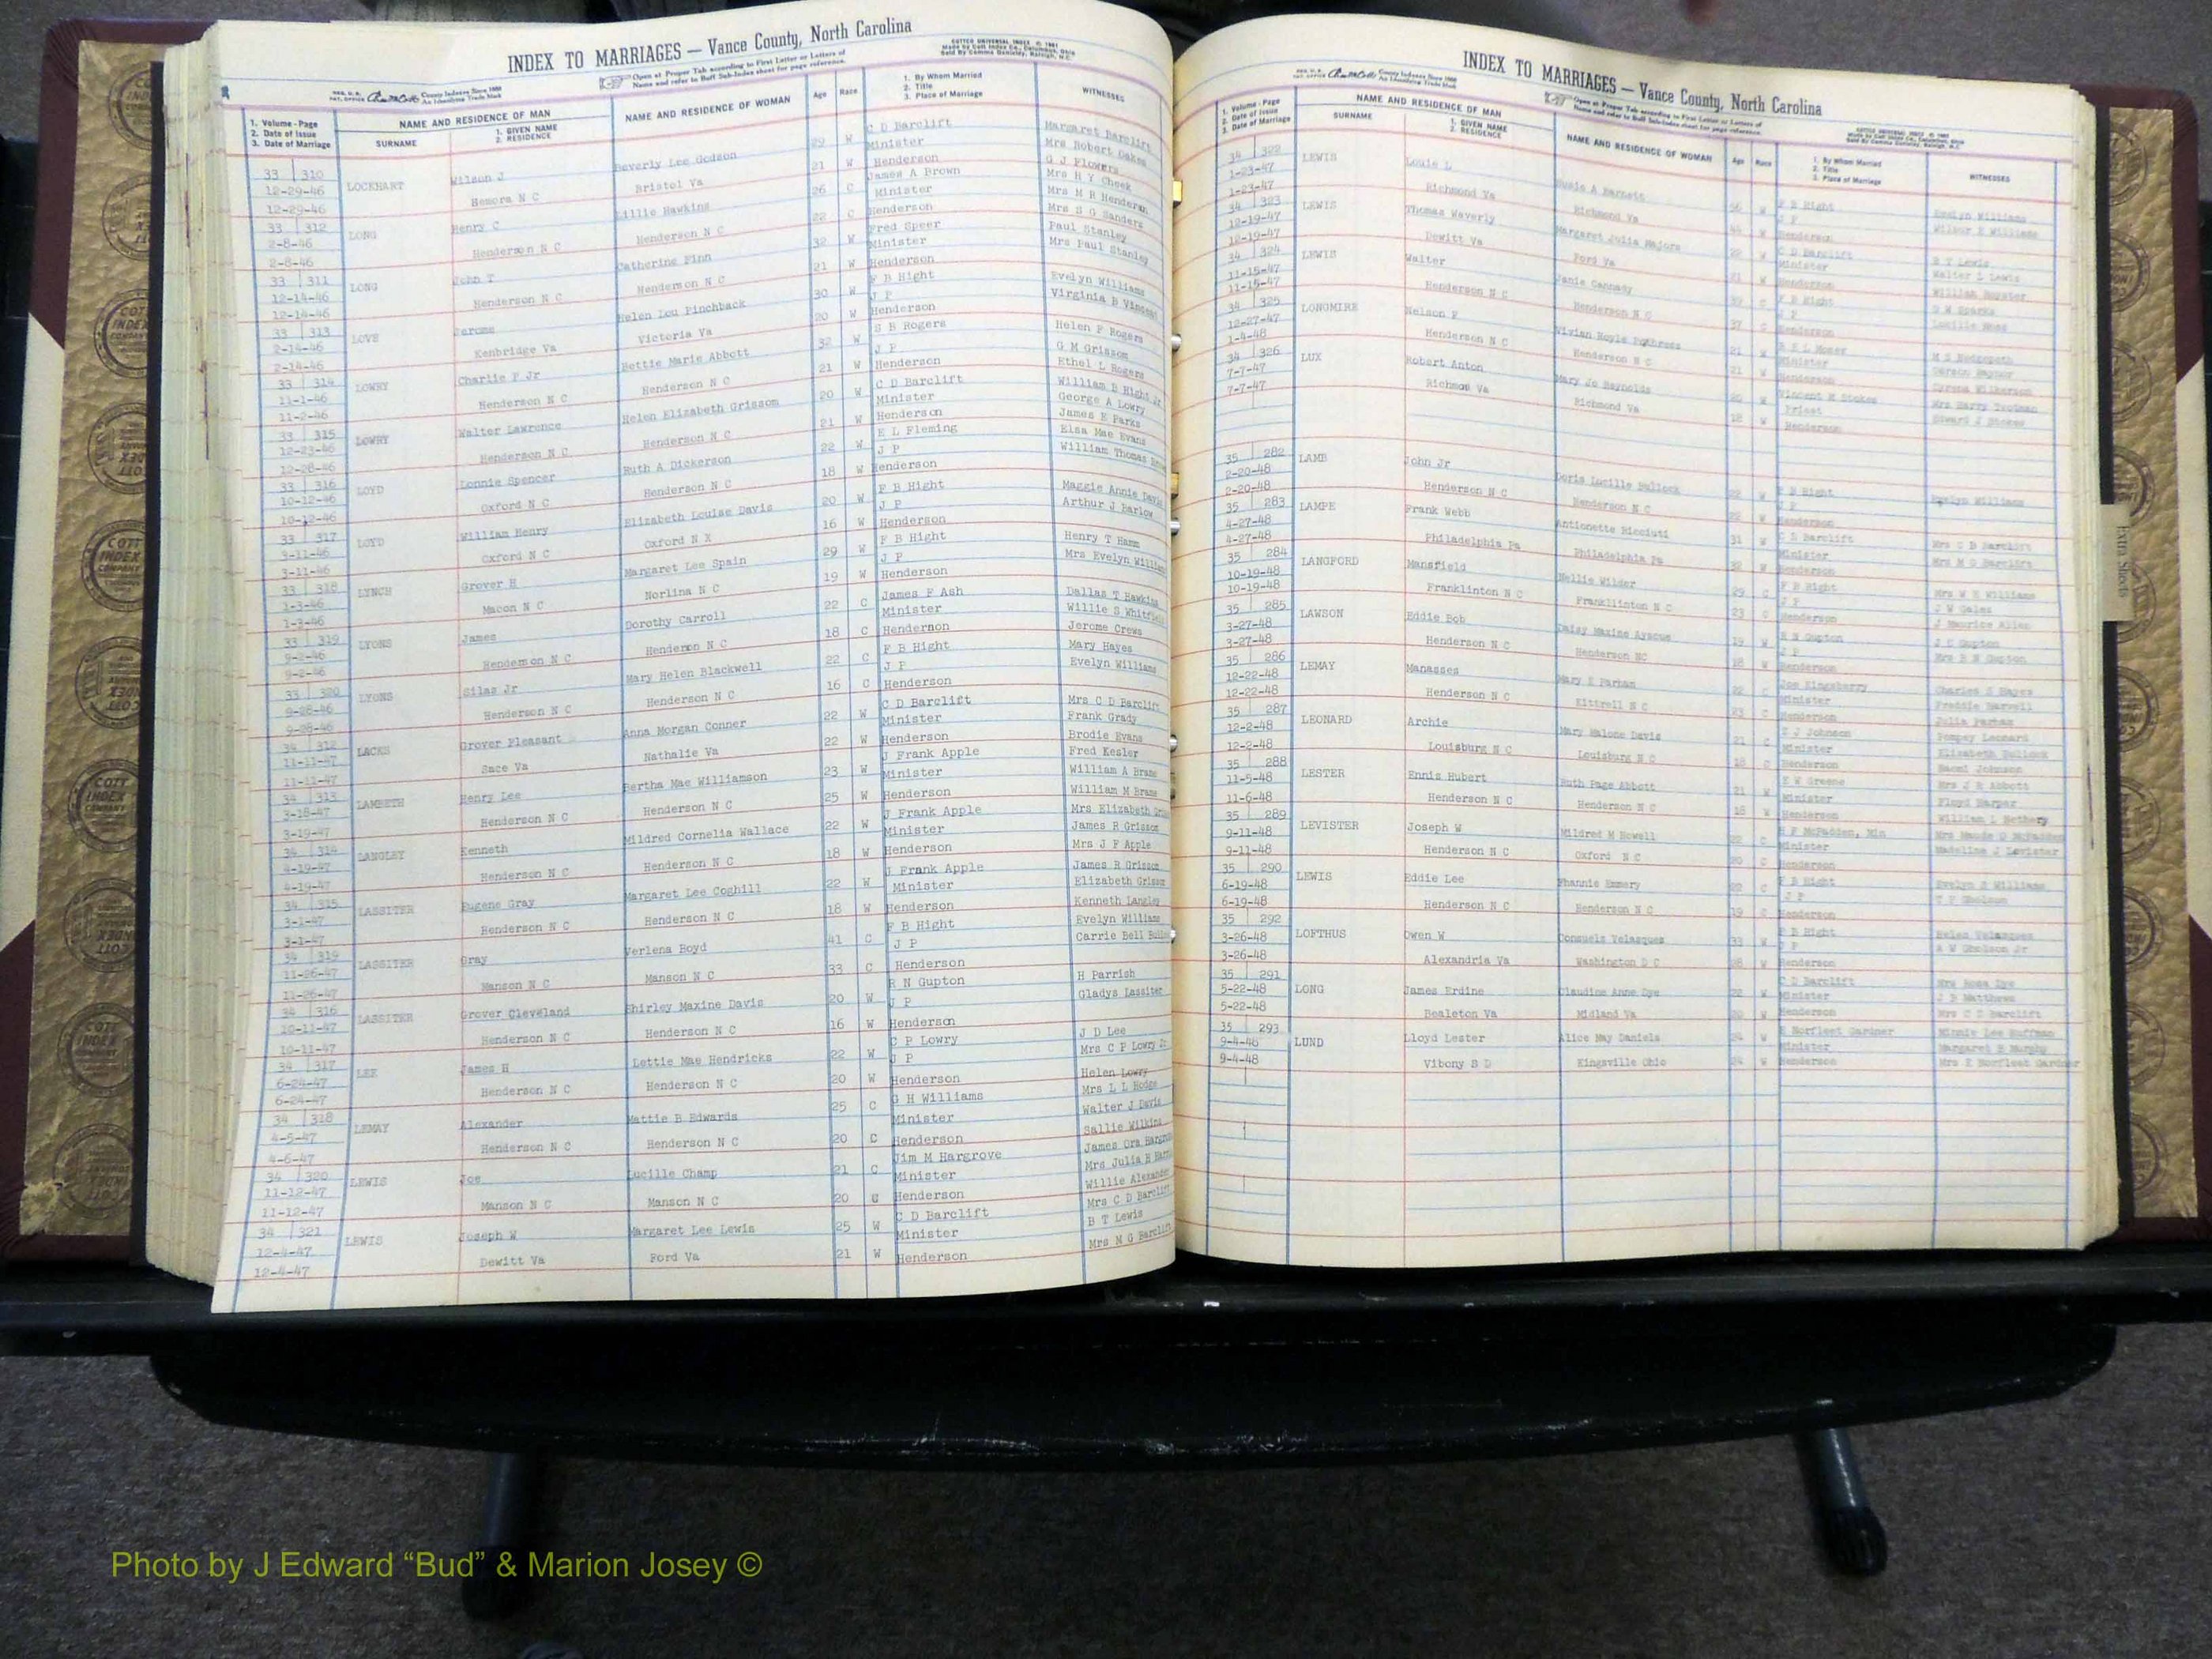 INDEX TO MARRIAGES — Vance County, North Carolina
COTT'S UNIVERSAL INDEX © 1961
Made by Cott Index Co., Columbus, Ohio
Sold By Commercial
County Indexes Since 1888
An Identifying Trade Mark
Open at Proper Tab according to First Letter or Letters of
Name and refer to Buff Sub-Index sheet for page reference.
1. Volume - Page
2. Date of Issue
3. Date of Marriage
NAME AND RESIDENCE OF MAN
SURNAME
1. GIVEN NAME
2. RESIDENCE
NAME AND RESIDENCE OF WOMAN
Age Race
1. By Whom Married
2. Title
3. Place of Marriage
WITNESSES
33 310 LOCKHART Wilson J Beverly Lee Godson 29 W C D Barclift Margaret Barclift
12-29-46 Minister Mrs Robert Oakes
12-29-46 Hemora N C Bristol Va 21 W Henderson G J Flowers
33 312 LONG Henry C Lillie Hawkins 26 C James A Brown Mrs H Y Cheek
2-8-46 Minister Mrs M R Henderson
2-8-46 Henderson N C Henderson N C 22 C Henderson Mrs S G Sanders
33 311 LONG John T Catherine Finn 32 W Fred Speer Paul Stanley
12-14-46 Minister Mrs Paul Stanley
12-14-46 Henderson N C Henderson N C 21 W Henderson
33 313 LOVE Jerome Helen Lou Pinchback 30 W F B Hight Evelyn Williams
2-14-46 J P Virginia B
2-14-46 Kenbridge Va Victoria Va 20 W Henderson
33 314 LOWRY Charlie P Jr Bettie Marie Abbott 32 W S B Rogers Helen F Rogers
11-1-46 J P G M Grissom
11-2-46 Henderson N C Henderson N C 21 W Henderson Ethel L Rogers
33 315 LOWRY Walter Lawrence Helen Elizabeth Grissom 20 W C D Barclift William B Hight Jr
12-23-46 Minister George A Lowry
12-28-46 Henderson N C Henderson N C 21 W Henderson James E Parks
33 316 LOYD Lonnie Spencer Ruth A Dickerson 22 W E L Fleming Elsa Mae Evans
10-12-46 J P William Thomas
10-12-46 Oxford N C Henderson N C 18 W Henderson
33 317 LOYD William Henry Elizabeth Louise Davis 20 W F B Hight Maggie Annie Davis
3-11-46 J P Arthur J Barlow
3-11-46 Oxford N C Oxford N X 16 W Henderson
33 318 LYNCH Grover H Margaret Lee Spain 29 W F B Hight Henry T Hamm
1-3-46 J P Mrs Evelyn
1-3-46 Macon N C Norlina N C 19 W Henderson
33 319 LYONS James Dorothy Carroll 22 C James F Ash Dallas T Hawkins
9-2-46 Minister Willie S
9-2-46 Henderson N C Henderson N C 18 C Henderson Jerome Crews
33 320 LYONS Silas Jr Mary Helen Blackwell 22 C F B Hight Mary Hayes
9-28-46 J P Evelyn Williams
9-28-46 Henderson N C Henderson N C 16 C Henderson
34 312 LACKS Grover Pleasant Anna Morgan Conner 22 W C D Barclift Mrs C D Barclift
11-11-47 Minister Frank Grady
11-11-47 Sace Va Nathalie Va 22 W Henderson Brodie Evans
34 313 LAMBETH Henry Lee Bertha Mae Williamson 23 W J Frank Apple Fred Kesler
3-18-47 Minister William A Brame
3-19-47 Henderson N C Henderson N C 25 W Henderson William M Brame
34 314 LANGLEY Kenneth Mildred Cornelia Wallace 22 W J Frank Apple Mrs Elizabeth
4-19-47 Minister James R Grissom
4-19-47 Henderson N C Henderson N C 18 W Henderson Mrs J F Apple
34 315 LASSITER Eugene Gray Margaret Lee Coghill 22 W J Frank Apple James R Grissom
3-1-47 Minister Elizabeth Grissom
3-1-47 Henderson N C Henderson N C 18 W Henderson Kenneth Langley
34 319 LASSITER Gray Verlena Boyd 41 C F B Hight Evelyn Williams
11-26-47 J P Carrie Bell
11-26-47 Manson N C Manson N C 33 C Henderson
34 316 LASSITER Grover Cleveland Shirley Maxine Davis 20 W R N Gupton H Parrish
10-11-47 J P Gladys Lassiter
10-11-47 Henderson N C Henderson N C 16 W Henderson
34 317 LEE James H Lettie Mae Hendricks 22 W C P Lowry J D Lee
6-24-47 J P Mrs C P Lowry Jr
6-24-47 Henderson N C Henderson N C 20 W Henderson Helen Lowry
34 318 LEMAY Alexander Mattie B Edwards 25 C G H Williams Mrs L L Hodge
4-5-47 Minister Walter J Davis
4-6-47 Henderson N C Henderson N C 20 C Henderson Sallie Wilkins
34 320 LEWIS Joe Lucille Champ 21 C Jim M Hargrove James Ora
11-12-47 Minister Mrs Julia H
11-12-47 Manson N C Manson N C 20 C Henderson Willie Alexander
34 321 LEWIS Joseph W Margaret Lee Lewis 25 W C D Barclift Mrs C D Barclift
12-4-47 Minister B T Lewis
12-4-47 Dewitt Va Ford Va 21 W Henderson Mrs M G Barclift
INDEX TO MARRIAGES — Vance County, North Carolina
County Indexes Since 1888
An Identifying Trade Mark
Open at Proper Tab according to First Letter or Letters of
Name and refer to Buff Sub-Index sheet for page reference.
1. Volume - Page
2. Date of Issue
3. Date of Marriage
NAME AND RESIDENCE OF MAN
SURNAME
1. GIVEN NAME
2. RESIDENCE
NAME AND RESIDENCE OF WOMAN
Age Race
1. By Whom Married
2. Title
3. Place of Marriage
WITNESSES
34 322 LEWIS Louie L Susie A Barnett 56 W F B Hight Evelyn Williams
1-23-47 J P Wilbur E Williams
1-23-47 Richmond Va Richmond Va 44 W Henderson
34 323 LEWIS Thomas Waverly Margaret Julia Majors 22 W C D Barclift B T Lewis
12-19-47 Minister Walter L Lewis
12-19-47 Dewitt Va Ford Va 21 W Henderson William Royster
34 324 LEWIS Walter Janie Cannady 39 C F B Hight D M Sparks
11-15-47 J P Lucille
11-15-47 Henderson N C Henderson N C 37 C Henderson
34 325 LONGMIRE Nelson F Vivian Hoyle 21 W M S Hedgepeth
12-27-47 Minister Carson Raynor
1-4-48 Henderson N C Henderson N C 21 W Henderson Cyrena Wilkerson
34 326 LUX Robert Anton Mary Jo Reynolds 20 W Vincent M Stokes Mrs Harry
7-7-47 Priest Edward J Stokes
7-7-47 Richmon Va Richmond Va 18 W Henderson
35 282 LAMB John Jr Doris Lucille Bullock 22 W F B Hight Evelyn Williams
2-20-48 J P
2-20-48 Henderson N C Henderson N C 22 W Henderson
35 283 LAMPE Frank Webb Antionette Ricciuti 31 W C D Barclift Mrs C D Barclift
4-27-48 Minister Mrs M G Barclift
4-27-48 Philadelphia Pa Philadelphia Pa 32 W Henderson
35 284 LANGFORD Mansfield Nellie Wilder 29 C F B Hight Mrs W E Williams
10-19-48 J P J W Gales
10-19-48 Franklinton N C Frankllinton N C 23 C Henderson J Maurice Allen
35 285 LAWSON Eddie Bob Daisy Maxine Ayscue 19 W R N Gupton J C Gupton
3-27-48 J P Mrs R N Gupton
3-27-48 Henderson N C Henderson NC 18 W Henderson
35 286 LEMAY Manasses Mary E Parham 22 C Joe Kingsberry Charles S Hayes
12-22-48 Minister Freddie Harvell
12-22-48 Henderson N C Kittrell N C 23 C Henderson Julia Parham
35 287 LEONARD Archie Mary Malone Davis 21 C T J Johnson Pompey Leonard
12-2-48 Minister Elizabeth Bullock
12-2-48 Louisburg N C Louisburg N C 18 C Henderson Naomi Johnson
35 288 LESTER Ennis Hubert Ruth Page Abbott 21 W E W Greene Mrs J R Abbott
11-5-48 Minister Floyd Harper
11-6-48 Henderson N C Henderson N C 18 W Henderson William L Nethery
35 289 LEVISTER Joseph W Mildred M Howell 22 C H F McFadden, Min Mrs Maude D McFadden
9-11-48 Minister Madeline J Levister
9-11-48 Henderson N C Oxford N C 20 C Henderson
35 290 LEWIS Eddie Lee Phannie Emmery 22 C F B Hight Evelyn S Williams
6-19-48 J P
6-19-48 Henderson N C Henderson N C 19 C Henderson
35 292 LOFTHUS Owen W Consuela Velasques 33 W F B Hight Helen Velasques
3-26-48 J P A W Gholson Jr
3-26-48 Alexandria Va Washington D C 28 W Henderson
35 291 LONG James Erdine Claudine Anne Dye 22 W C D Barclift Mrs Rosa Dye
5-22-48 Minister J B Matthews
5-22-48 Bealeton Va Midland Va 20 W Henderson Mrs C D Barclift
35 293 LUND Lloyd Lester Alice May Daniels 24 W E Norfleet Gardner Minnie Lee Huffman
9-4-48 Minister Margaret B Murphy
9-4-48 Vibony S D Kingsville Ohio 24 W Henderson Mrs E Norfleet Gardner
Extra Sheets
COTT
INDEX
COMPANY
Photo by J Edward “Bud” & Marion Josey ©